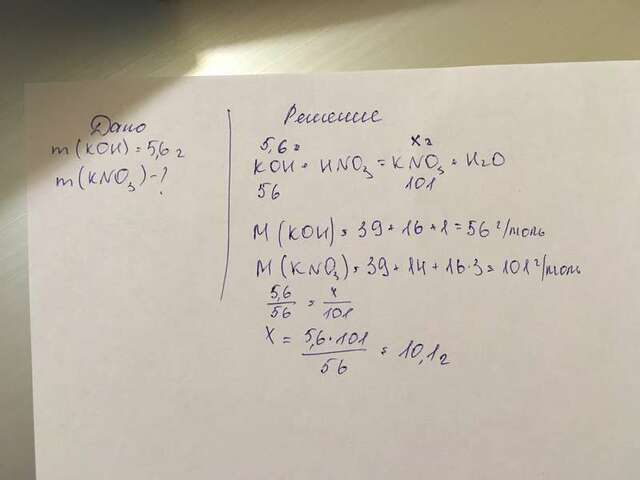 Дано
m(KOH) = 5,6 г
m(KNO₃) - ?
Решение
5,6 г x г
KOH + HNO₃ = KNO₃ + H₂O
56 101
M(KOH) = 39 + 16 + 1 = 56 г/моль
M(KNO₃) = 39 + 14 + 16·3 = 101 г/моль
5,6/56 = x/101
x = 5,6·101/56 = 10,1 г